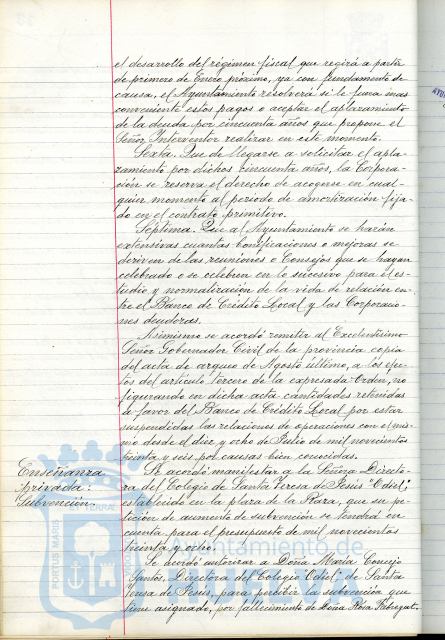 el desarrollo del régimen fiscal que regirá a partir
de primero de Enero próximo, ya con fundamento de
causa, el Ayuntamiento resolverá si le fuera mas
conveniente estos pagos o aceptar el aplazamiento
de la deuda por cincuenta años que propone el
Señor Interventor realizar en este momento.
Sexta. Que de llegarse a solicitar el apla-
zamiento por dichos cincuenta años, la Corpora-
ción se reserva el derecho de acogerse en cual-
quier momento al periodo de amortización fija-
do en el contrato primitivo.
Septima. Que al Ayuntamiento se harán
extensivas cuantas bonificaciones o mejoras se
deriven de las reuniones o Consejos que se hayan
celebrado o se celebren en lo sucesivo para el es-
tudio y normalización de la vida de relación en-
tre el Banco de Crédito Local y las Corporacio-
nes deudoras.
Asimismo se acordó remitir al Excelentísimo
Señor Gobernador Civil de la provincia copia
del acta de arqueo de Agosto último, a los efec-
tos del artículo tercero de la expresada Orden, no
figurando en dicha acta cantidades retenidas
a favor del Banco de Crédito Local por estar
suspendidas las relaciones de operaciones con el mis-
mo desde el diez y ocho de Julio de mil novecientos
treinta y seis por causas bien conocidas.
Enseñanza
privada:
Subvención.
Se acordó manifestar a la Señora Directo-
ra del Colegio de Santa Teresa de Jesús "Odiel",
establecido en la plaza de la Raza, que su pe-
tición de aumento de subvención se tendrá en
cuenta para el presupuesto de mil novecientos
treinta y ocho.
Se acordó autorizar a Doña María Concejo
Santos, Directora del Colegio "Odiel", de Santa
Teresa de Jesús, para percibir la subvención que
tiene asignado, por fallecimiento de Doña Rosa
PORTUS MARIS
Ayuntamiento de